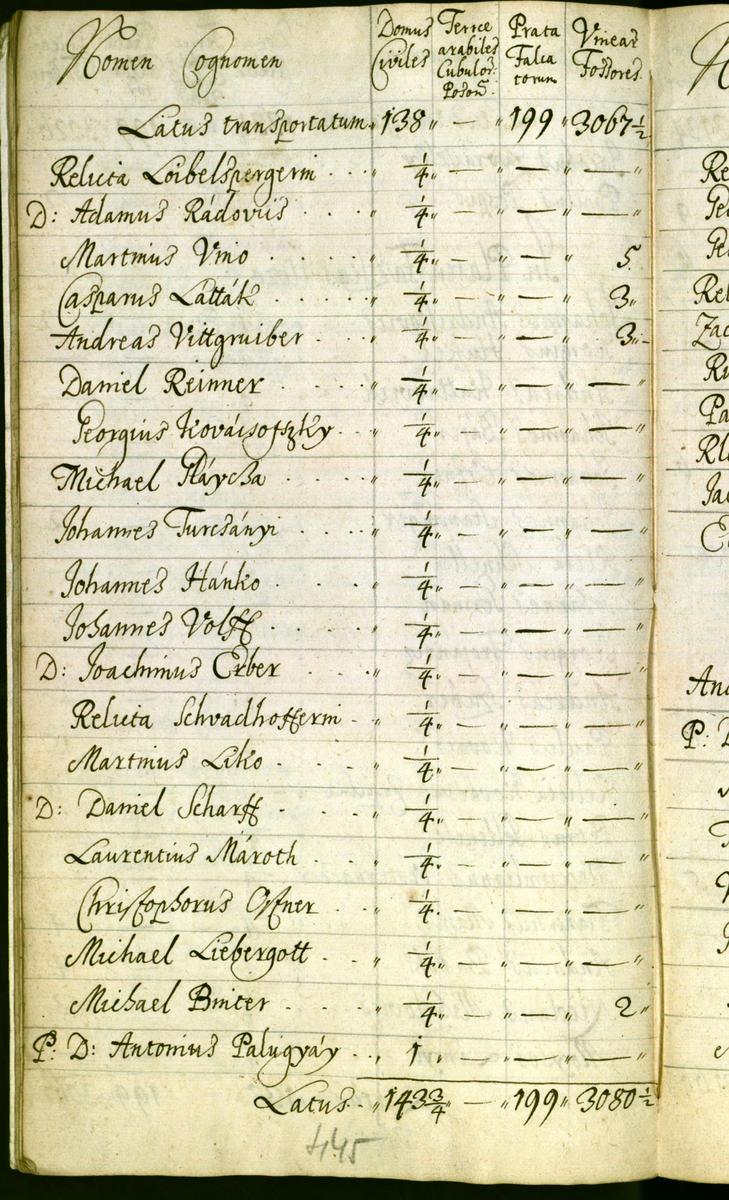 Nomen Cognomen Domus Civiles Terræ arabiles Cubulor: Poson: Prata Falca torum Vineae Fossores.
Latus transportatum „ 138 „ — „ 199 „ 3067 1/2
Relicta Loibelspergerin . . . „ 1/4 „ — „ — „ — „
D: Adamus Rádovits . . . . „ 1/4 „ — „ — „ — „
Martinus Vino . . . . . „ 1/4 „ — „ — „ 5.
Casparus Látták . . . . . „ 1/4 „ — „ — „ 3 „
Andreas Vittgruiber . . . . „ 1/4 „ — „ — „ 3 „
Daniel Reinner . . . . „ 1/4 „ — „ — „ — „
Georgius Kovácsofszky . . „ 1/4 „ — „ — „ — „
Michael Pláycha . . . . „ 1/4 „ — „ — „ — „
Johannes Turcsányi . . . . „ 1/4 „ — „ — „ — „
Johannes Hánko . . . . „ 1/4 „ — „ — „ — „
Johannes Volff . . . . . „ 1/4 „ — „ — „ — „
D: Joachimus Erber . . . . „ 1/4 „ — „ — „ — „
Relicta Schvadhofferin . . „ 1/4 „ — „ — „ — „
Martinus Liko . . . . „ 1/4 „ — „ — „ — „
D: Daniel Scharff . . . . „ 1/4 „ — „ — „ — „
Laurentius Maroth . . . „ 1/4 „ — „ — „ — „
Christophorus Offner . . . „ 1/4 . — „ — „ — „
Michael Liebergott . . . „ 1/4 „ — „ — „ — „
Michael Binter . . . . „ 1/4 „ — „ — „ 2 „
P: D: Antonius Palugyáy . . „ 1 „ — „ — „ — „
Latus . „ 143 3/4 „ — „ 199 „ 3080 1/2
445